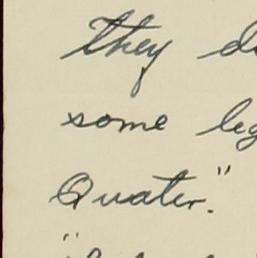 they d
some leg
Quater."